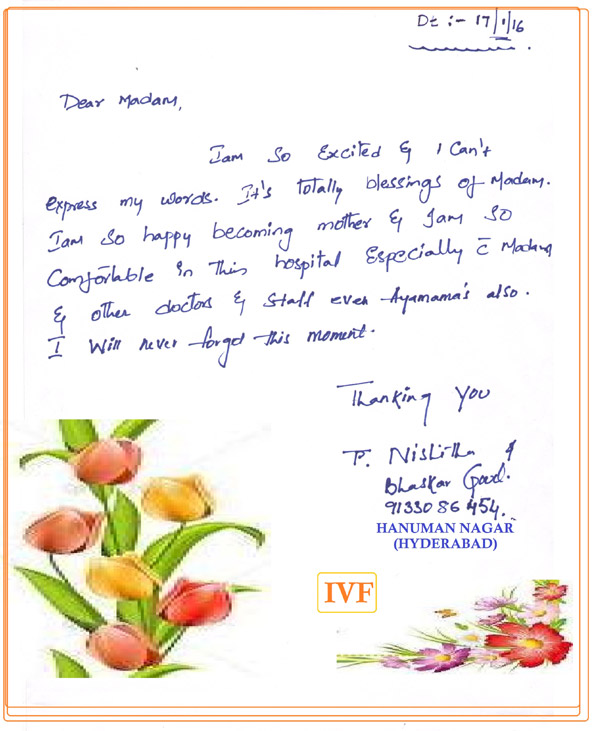 Dt :- 17/1/16
Dear Madam,
Iam So Excited & I Can't
express my words. It's totally blessings of Madam.
Iam so happy becoming mother & Iam so
Comfortable in this hospital Especially c̄ Madam
& other doctors & staff even Ayamama's also.
I Will never forget this moment.
Thanking you
P. Nishitha &
Bhaskar Goud.
9133086454.
HANUMAN NAGAR
(HYDERABAD)
IVF